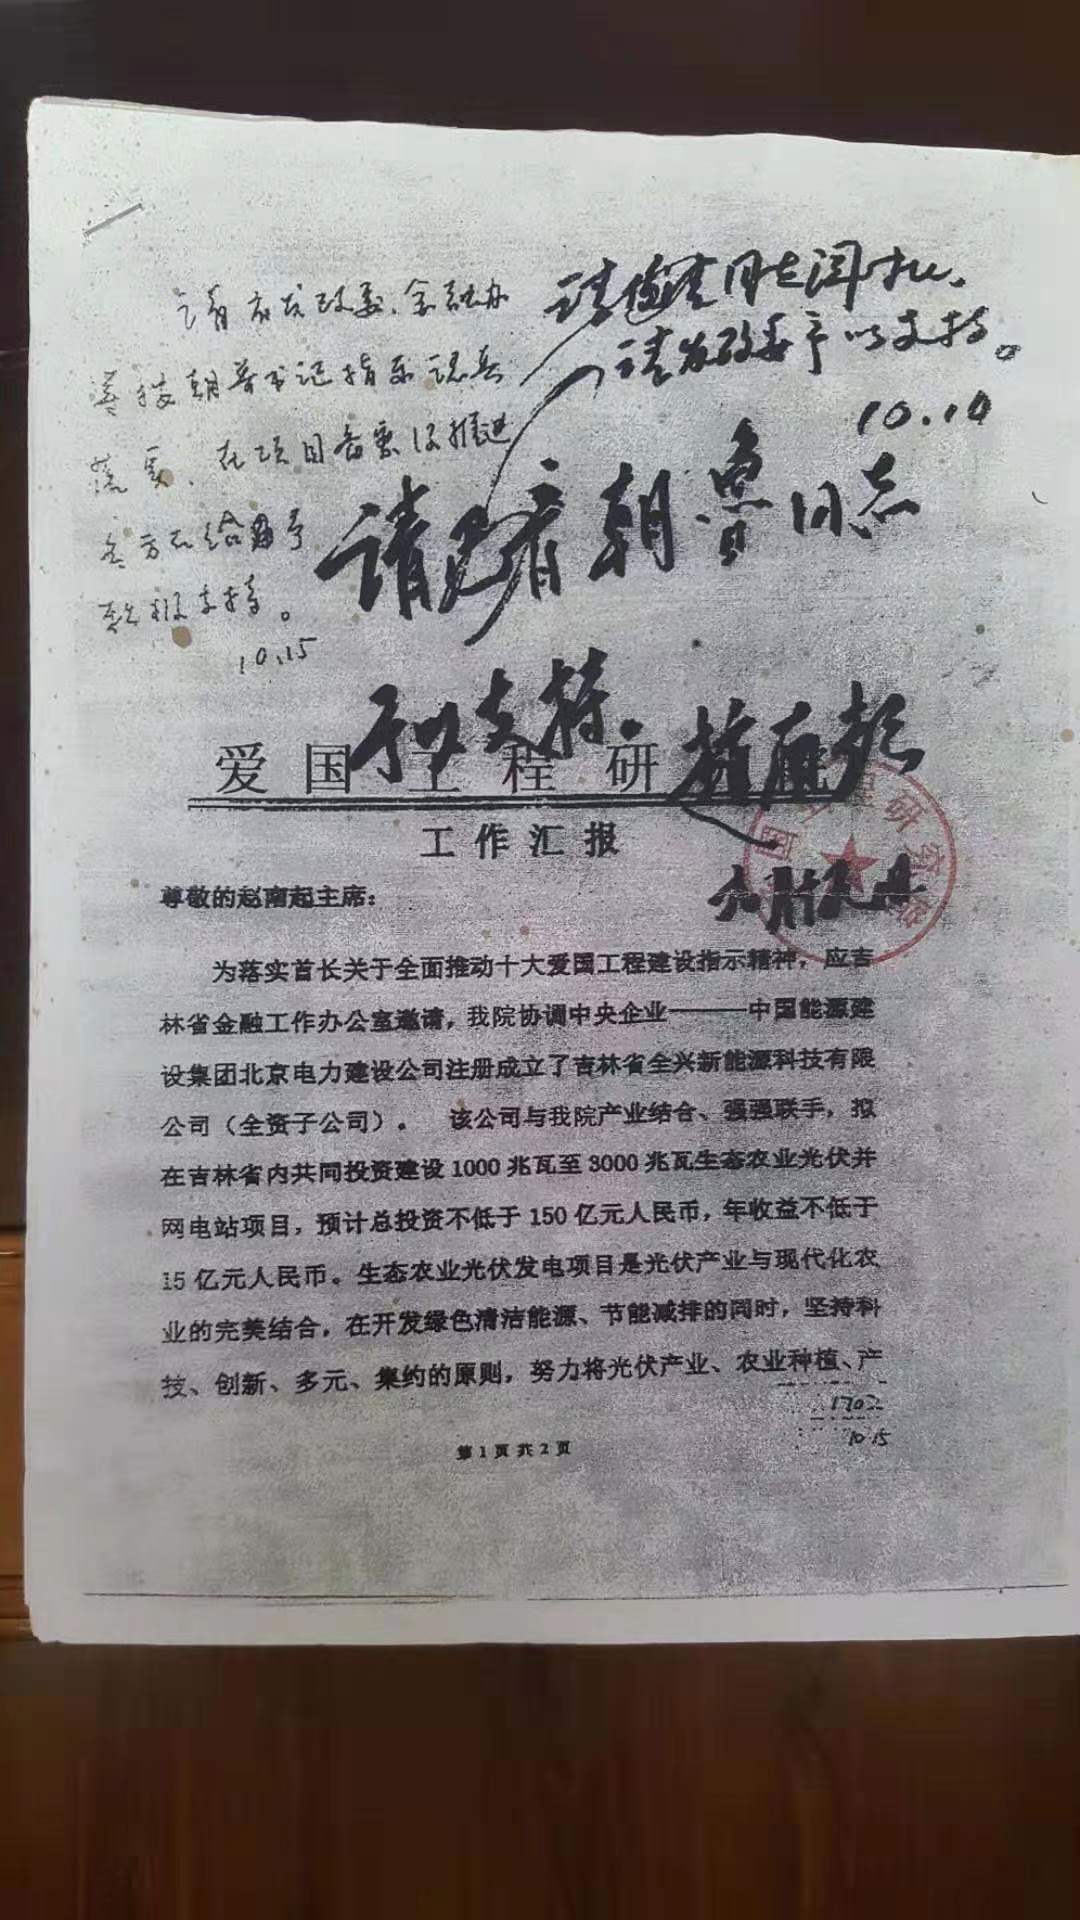 请省发改委、金融办
落实、在项目备案
支持。
10.15
同志阅批、
请发改委予以支持。
10.10
请巴音朝鲁同志
予以支持.
赵南起
爱国工程研
工作汇报
尊敬的赵南起主席：
为落实首长关于全面推动十大爱国工程建设指示精神，应吉
林省金融工作办公室邀请，我院协调中央企业———中国能源建
设集团北京电力建设公司注册成立了吉林省全兴新能源科技有限
公司（全资子公司）。 该公司与我院产业结合、强强联手，拟
在吉林省内共同投资建设 1000 兆瓦至 3000 兆瓦生态农业光伏并
网电站项目，预计总投资不低于 150 亿元人民币，年收益不低于
15 亿元人民币。生态农业光伏发电项目是光伏产业与现代化农
业的完美结合，在开发绿色清洁能源、节能减排的同时，坚持科
技、创新、多元、集约的原则，努力将光伏产业、农业种植、产
10.15
第 1 页 共 2 页